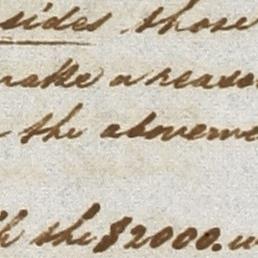 sides those
make a reaso
the aboveme
the $2000.